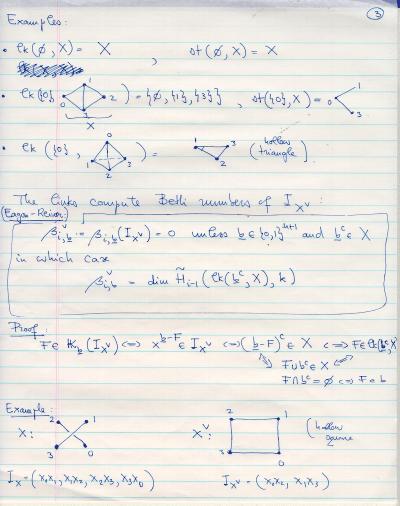 3
Examples:
• lk(∅, X) = X , st(∅, X) = X
• lk({0}, 0 1 2 3 X) = {∅, {1}, {3}} , st({0}, X) = 0 1 3
• lk({0}, 0 1 2 3) = 1 2 3 (hollow triangle)
The links compute Betti numbers of I_X^∨ :
(Eagon-Reiner)
β^∨_{i,b} := β_{i,b}(I_X^∨) = 0 unless b ∈ {0,1}^{n+1} and b^c ∈ X
in which case
β^∨_{i,b} = dim H̃_{i-1}(lk(b^c, X), k)
Proof:
F ∈ K_b(I_X^∨) ⟺ x^{b-F} ∈ I_X^∨ ⟺ (b-F)^c ∈ X ⟺ F ∈ lk(b^c, X)
F ∪ b^c ∈ X
F ∩ b^c = ∅ ⟺ F ∈ b
Example:
X: 2 1 3 0 X^∨: 2 1 3 0 (hollow square
I_X = (x_0x_1, x_1x_2, x_2x_3, x_3x_0) I_X^∨ = (x_0x_2, x_1x_3)